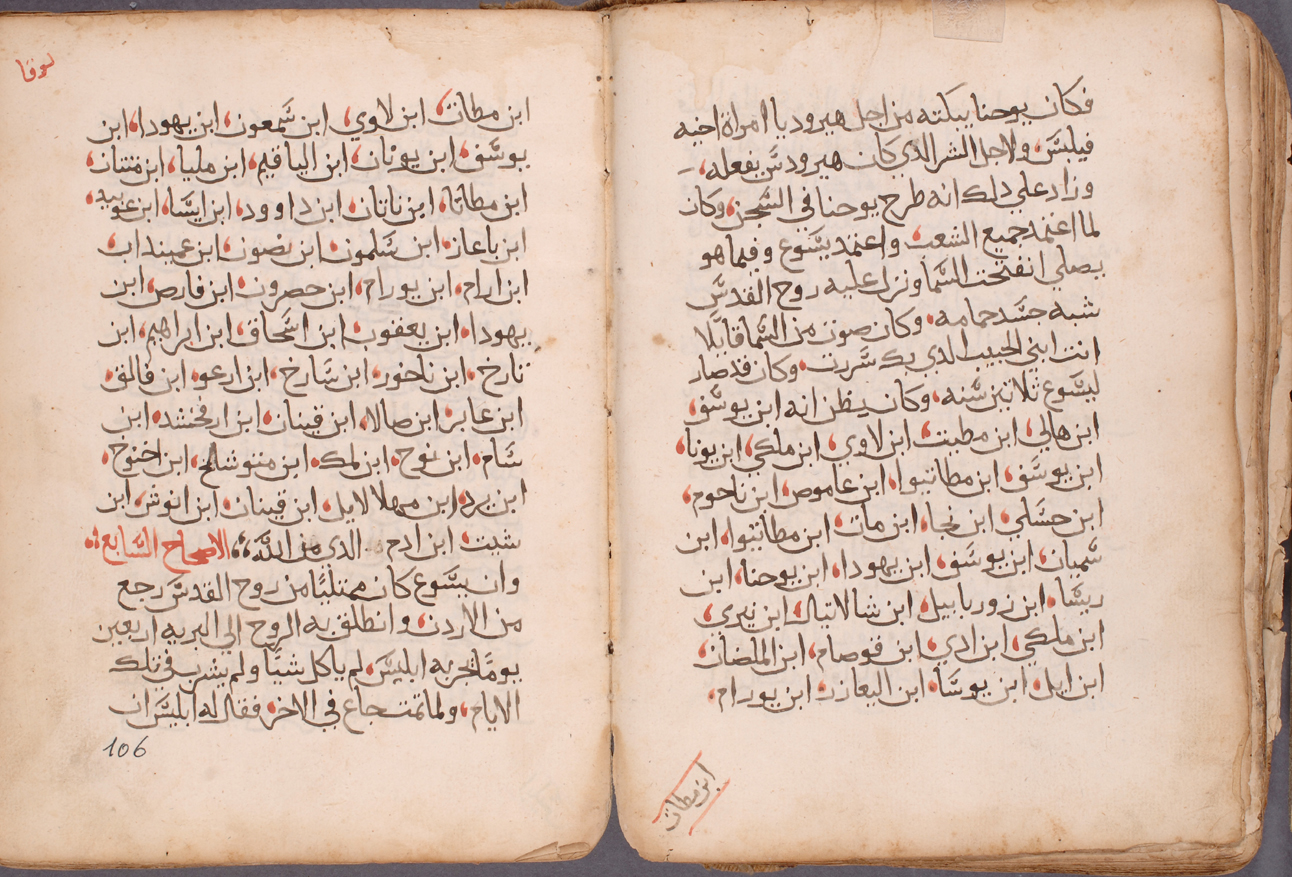 فكان يوحنا يبكته من اجل هيروديا امراة اخيه
فيلبس، ولاجل الشر الدي كان هيرودس يفعله،
وزاد علي دلك انه طرح يوحنا في السجن، وكان
لما اعتمد جميع الشعب، واعتمد يسوع وفيما هو
يصلي انفتحت السما ونزل عليه روح القدس
شبه جسد حمامه، وكان صوت من السما قايلا
انت ابني الحبيب الدي بك سررت، وكان قد صار
ليسوع ثلاثين سنه، وكان يظن انه ابن يوسف،
ابن هالي، ابن مطيت، ابن لاوي، ابن ملكي، ابن يونا،
ابن يوسف، ابن مطاتيوا، ابن عاموص، ابن ناحوم،
ابن حسلي، ابن نجا، ابن مات، ابن مطاتيوا، ابن
سميان، ابن يوسف، ابن يهودا، ابن يوحنا، ابن
ريسا، ابن زوربابيل، ابن شالاتيال، ابن نيري،
ابن ملكي، ابن ادي، ابن قوصام، ابن الملضان،
ابن ايل، ابن يوسا، ابن اليعازر، ابن يورام،
ابن مطات
لوقا
ابن مطات، ابن لاوي، ابن شمعون، ابن يهودا، ابن
يوسف، ابن يونان، ابن الياقيم، ابن مليا، ابن منتان،
ابن مطاتا، ابن ناتان، ابن داوود، ابن ايسا، ابن عوبيد،
ابن باعاز، ابن سلمون، ابن نصون، ابن عميناداب،
ابن ارام، ابن يورام، ابن حصرون، ابن فارص، ابن
يهودا، ابن يعقوب، ابن اسحاق، ابن ابراهيم، ابن
تارخ، ابن ناحور، ابن سارخ، ابن ارعو، ابن فالق،
ابن عابر، ابن صالا، ابن قينان، ابن ارفخشد، ابن
سام، ابن نوح، ابن لمك، ابن متوشالخ، ابن اخنوخ،
ابن يرد، ابن مهلالاييل، ابن قينان، ابن انوش، ابن
شيت، ابن ادم، الدي من الله، الاصحاح السابع
وان يسوع كان ممتليًا من روح القدس رجع
من الاردن، وانطلق به الروح الي البريه اربعين
يومًا تجربه ابليس، لم ياكل شيًا ولم يشرب في تلك
الايام، ولما تمت جاع في الاخر، فقال له ابليس ان
106